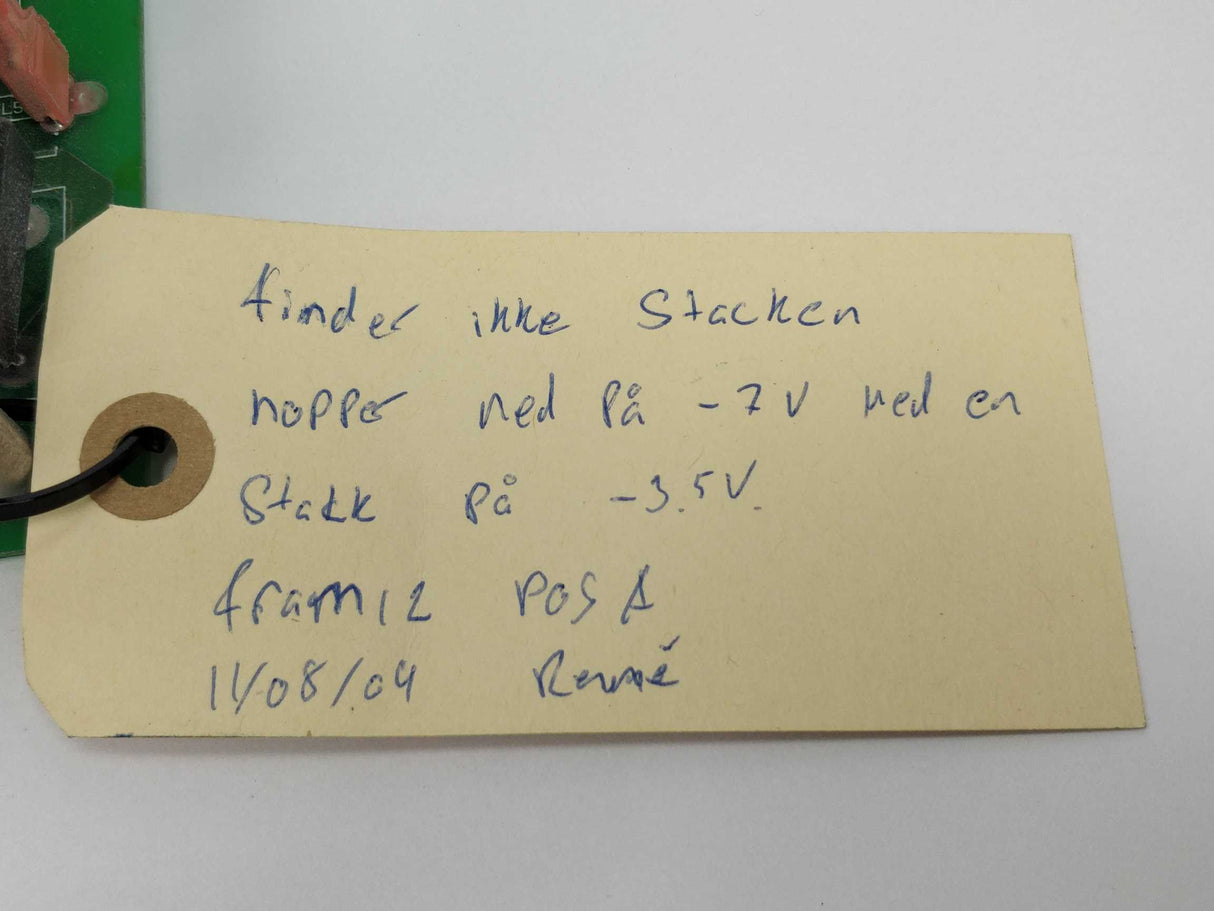 L5
finder ikke Stacken
hopper ned på -7V med en
Stakk på -3.5V.
fram12 pos A
11/08/04